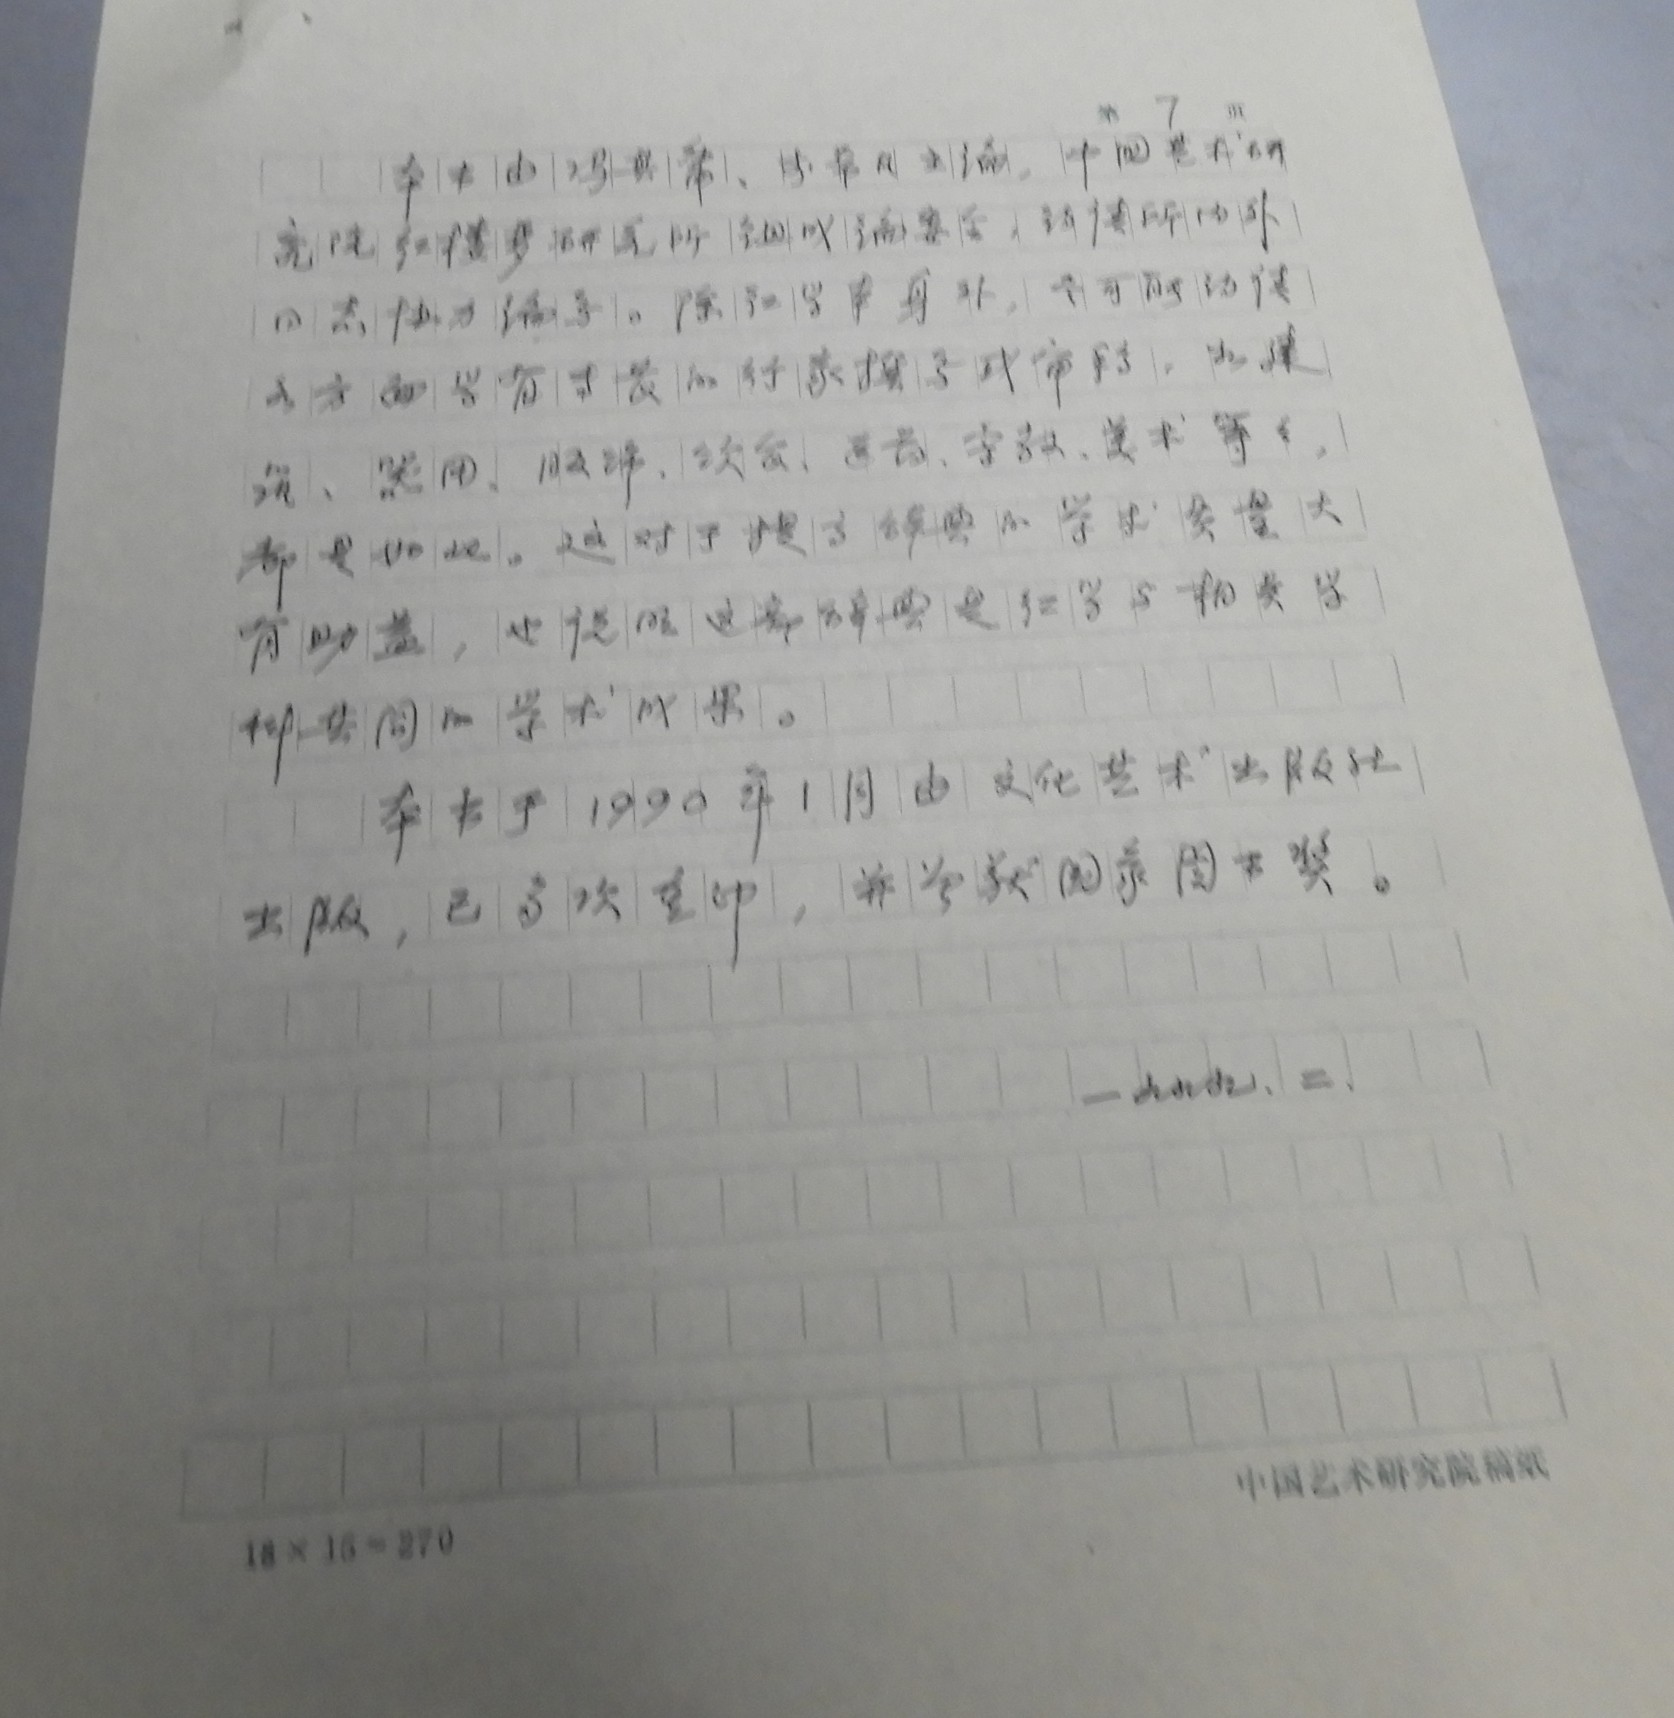 第 7 页
本书由冯其庸、李希凡主编，中国艺术研
究院红楼梦研究所组成编委会，约请所内外
同志协力编写。除红学本身外，尽可能约请
各方面学有专长的行家撰写或审稿，如建
筑、器用、服饰、饮食、医药、宗教、美术等等，
都是如此。这对于提高辞典的学术质量大
有助益，也说明这部辞典是红学与相关学
科共同的学术成果。
本书于1990年1月由文化艺术出版社
出版，已多次重印，并曾获国家图书奖。
中国艺术研究院稿纸
18×15=270